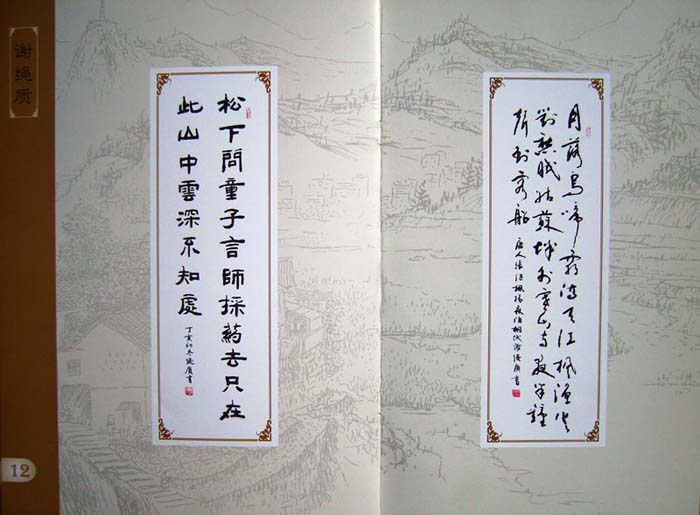 谢绳质
松下問童子言師採葯去只在
此山中雲深不知處
丁亥初冬繩質書
月落烏啼霜满天江楓漁火
對愁眠姑蘇城外寒山寺夜半鐘
聲到客船
唐人張继楓橋夜泊
12